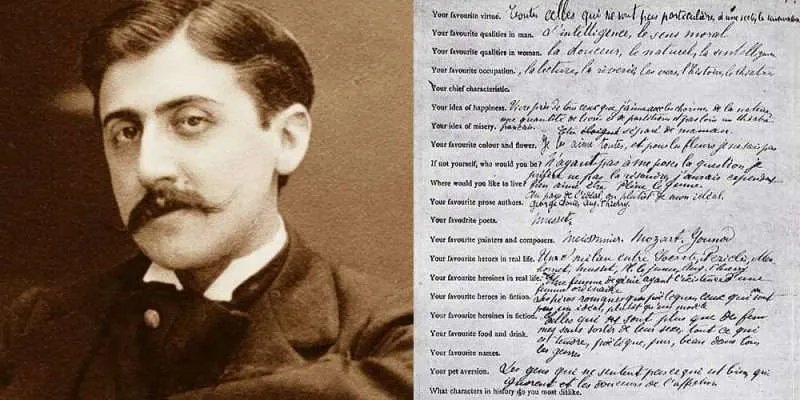 Your favourite virtue. Toutes celles qui ne sont pas particulière à une secte, les universelles
Your favourite qualities in man. L'intelligence, le sens moral
Your favourite qualities in woman. La douceur, le naturel, l'intelligence
Your favourite occupation. La lecture, la rêverie, les vers, l'histoire, le théâtre
Your chief characteristic.
Your idea of happiness. Vivre près de tous ceux que j'aime avec les charmes de la nature,
une quantité de livres et de partitions, et pas loin un théâtre
français.
Your idea of misery. Être séparé de maman.
Your favourite colour and flower. Je les aime toutes, et pour les fleurs, je ne sais pas
If not yourself, who would you be? N'ayant pas à me poser la question, je
préfère ne pas la résoudre, j'aurais cependant
bien aimé être Pline le jeune.
Where would you like to live? Au pays de l'idéal, ou plutôt de mon idéal.
Your favourite prose authors. George Sand, Aug. Thierry.
Your favourite poets. Musset.
Your favourite painters and composers. Meissonnier, Mozart, Gounod
Your favourite heroes in real life. Un milieu entre Socrate, Périclès, Mahomet, Musset, Pline le jeune, Aug. Thierry
Your favourite heroines in real life. Une femme de génie ayant l'existence d'une
femme ordinaire
Your favourite heroes in fiction. Les héros romanesques poétiques, ceux qui sont
un idéal plutôt qu'un modèle
Your favourite heroines in fiction. Celles qui sont plus que des femmes sans sortir de leur sexe, tout ce qui
est tendre, poétique, pur, beau dans tous
les genres
Your favourite food and drink.
Your favourite names.
Your pet aversion. Les gens qui ne sentent pas ce qui est bien, qui
ignorent les douceurs de l'affection
What characters in history do you most dislike.